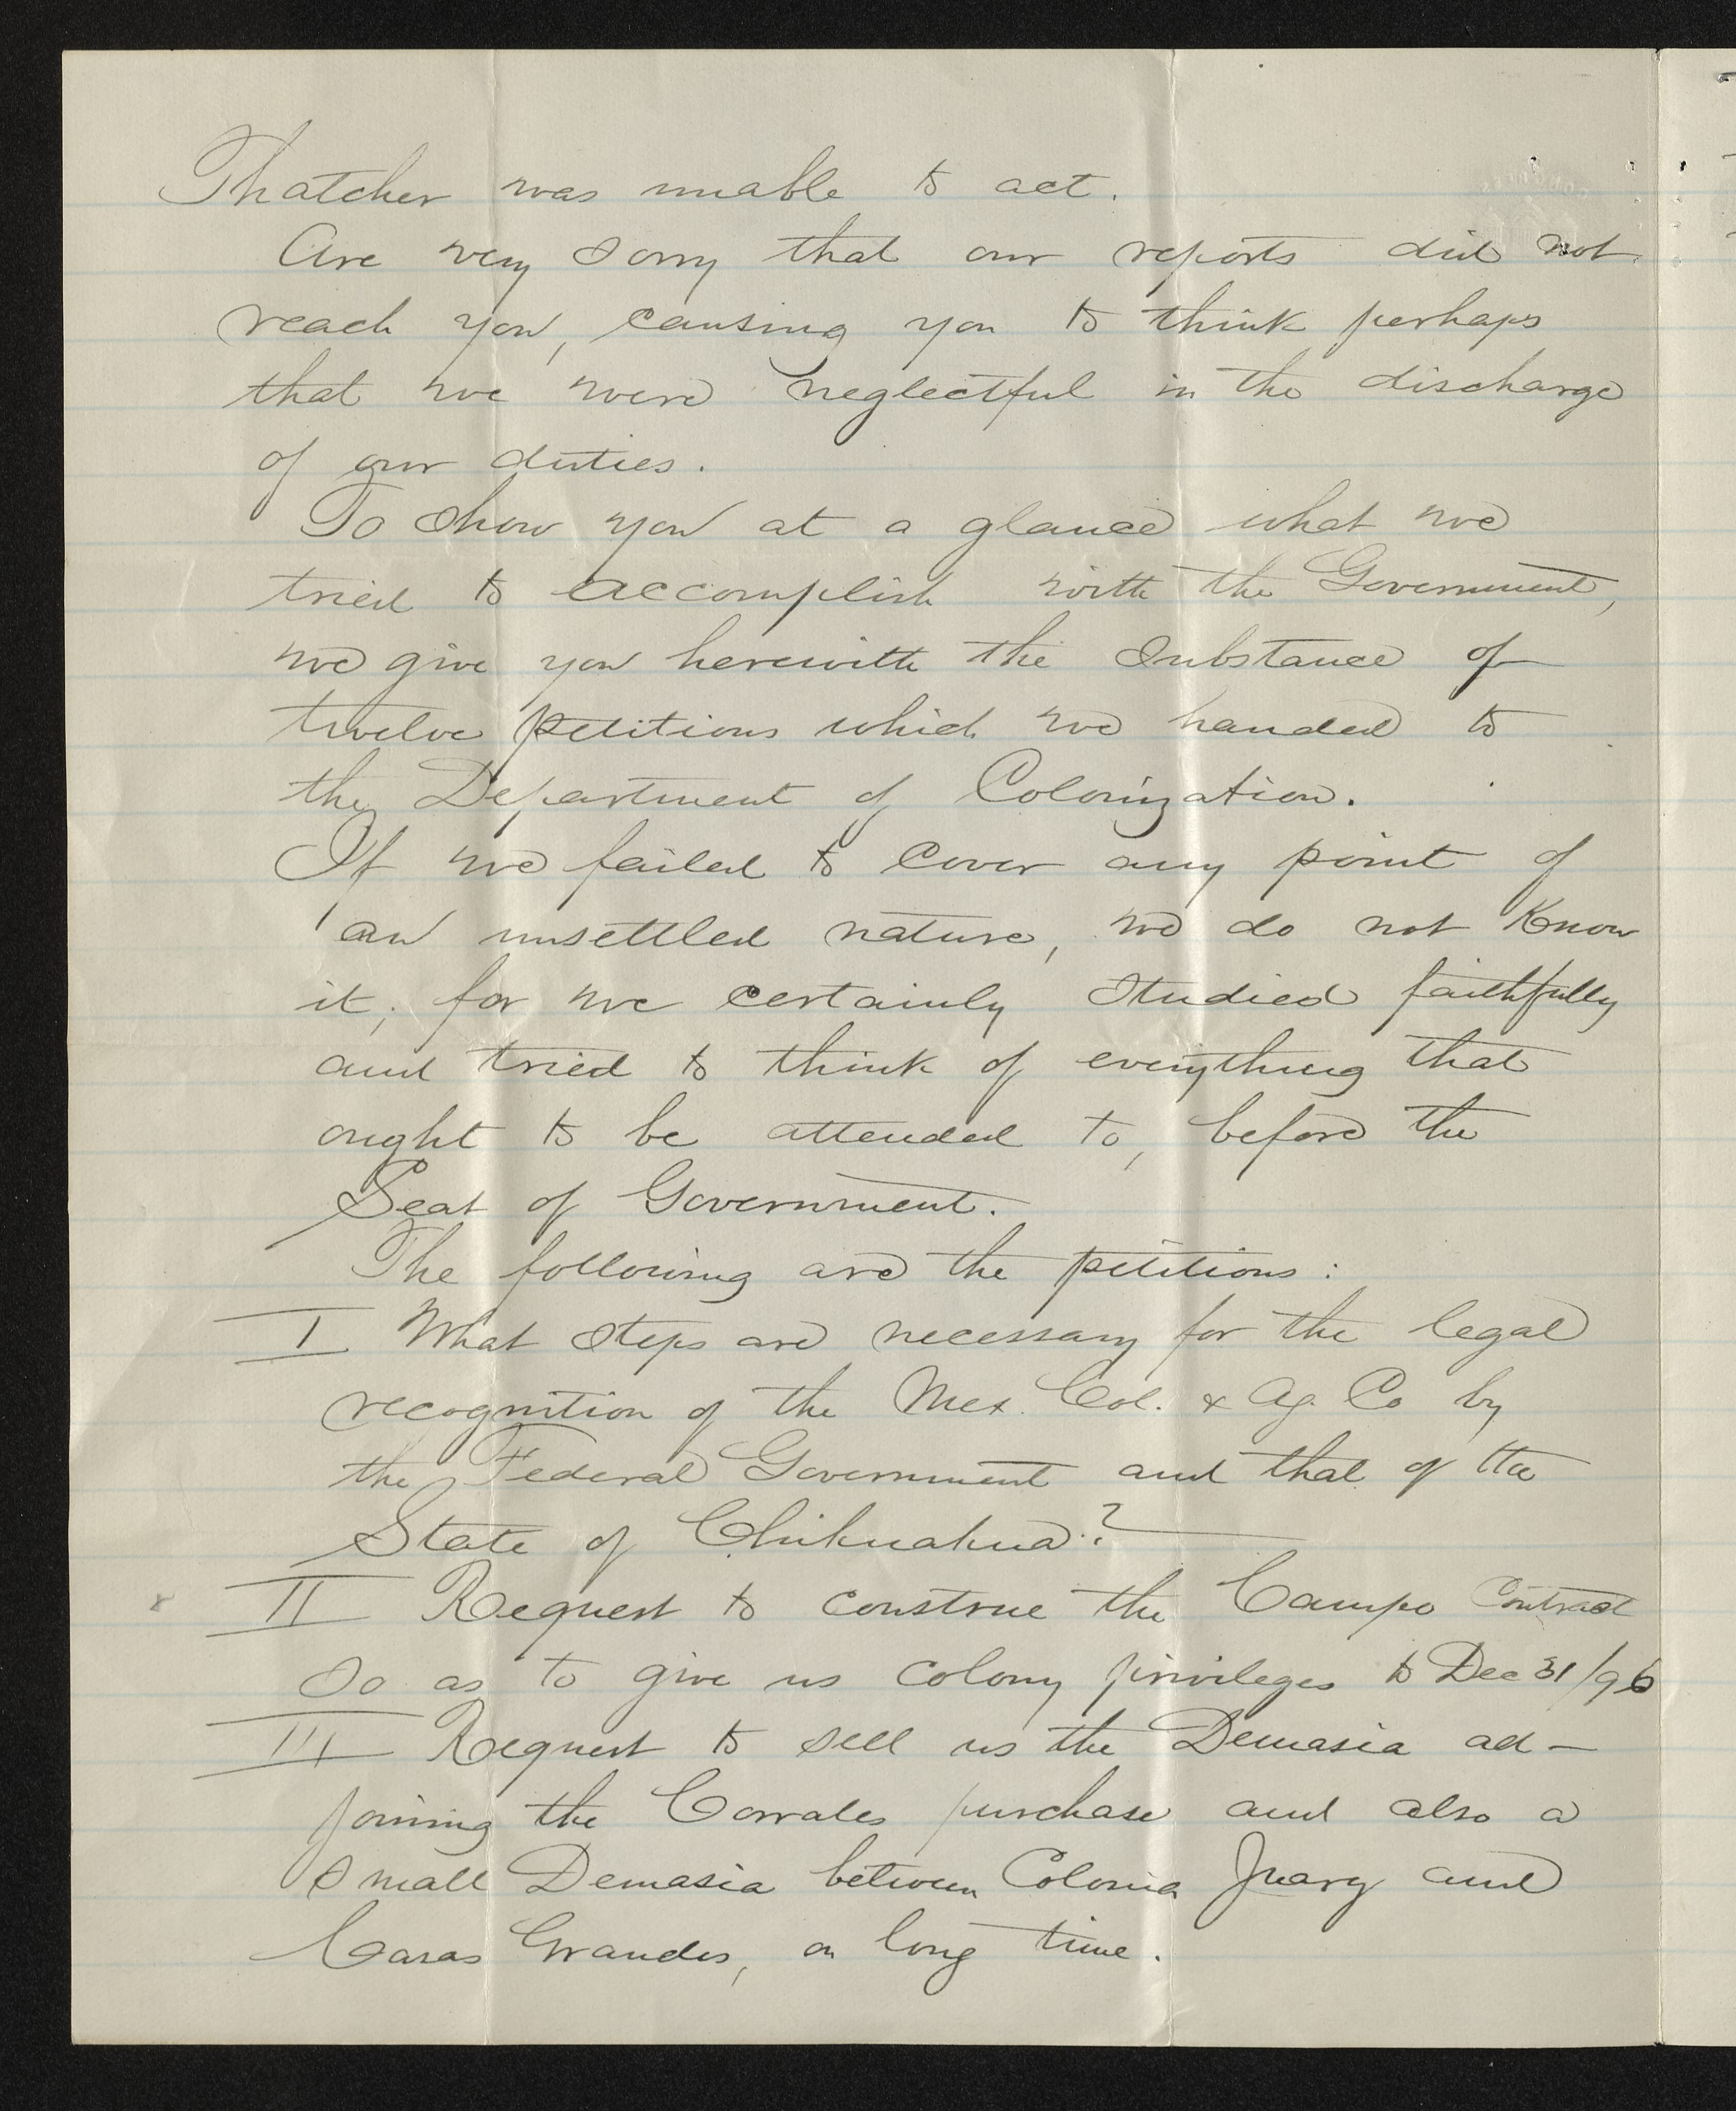 Thatcher was unable to act.
Are very sorry that our reports did not
reach you, causing you to think perhaps
that we were neglectful in the discharge
of our duties.
To show you at a glance what we
tried to accomplish with the Government,
we give you herewith the substance of
twelve petitions which we handed to
the Department of Colonization.
If we failed to cover any point of
an unsettled nature, we do not know
it; for we certainly studied faithfully
and tried to think of everything that
ought to be attended to, before the
Seat of Government.
The following are the petitions:
I What steps are necessary for the legal
recognition of the Mex. Col. & Ag. Co by
the Federal Government and that of the
State of Chihuahua?
II Request to construe the Campo Contract
so as to give us colony privileges to Dec 31/96
III Request to sell us the Demasia ad-
joining the Corrales purchase and also a
small Demasia between Colonia Juarez and
Casas Grandes, on long time.